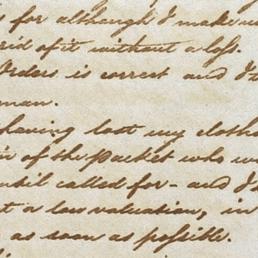 is for although I make us
rid of it without a loss.
Orders is correct and I
man.
having lost my cloth
of the Packet who w
until called for - and I
at a low valuation, in
as soon as possible.